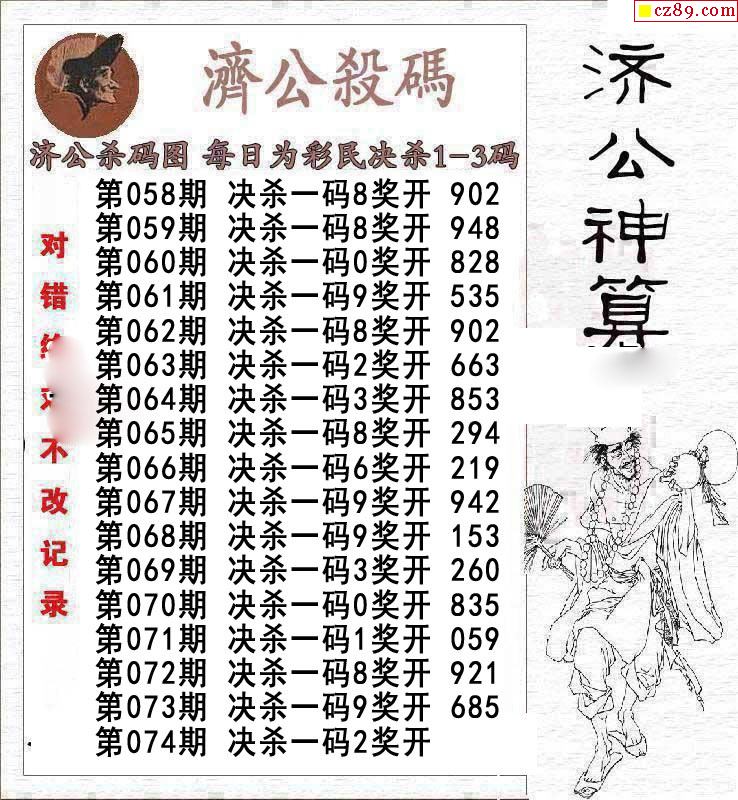 cz89.com
濟公殺碼
济公杀码图 每日为彩民决杀1-3码
第058期 决杀一码8奖开 902
第059期 决杀一码8奖开 948
第060期 决杀一码0奖开 828
第061期 决杀一码9奖开 535
第062期 决杀一码8奖开 902
第063期 决杀一码2奖开 663
第064期 决杀一码3奖开 853
第065期 决杀一码8奖开 294
第066期 决杀一码6奖开 219
第067期 决杀一码9奖开 942
第068期 决杀一码9奖开 153
第069期 决杀一码3奖开 260
第070期 决杀一码0奖开 835
第071期 决杀一码1奖开 059
第072期 决杀一码8奖开 921
第073期 决杀一码9奖开 685
第074期 决杀一码2奖开
对错不改记录
济公神算